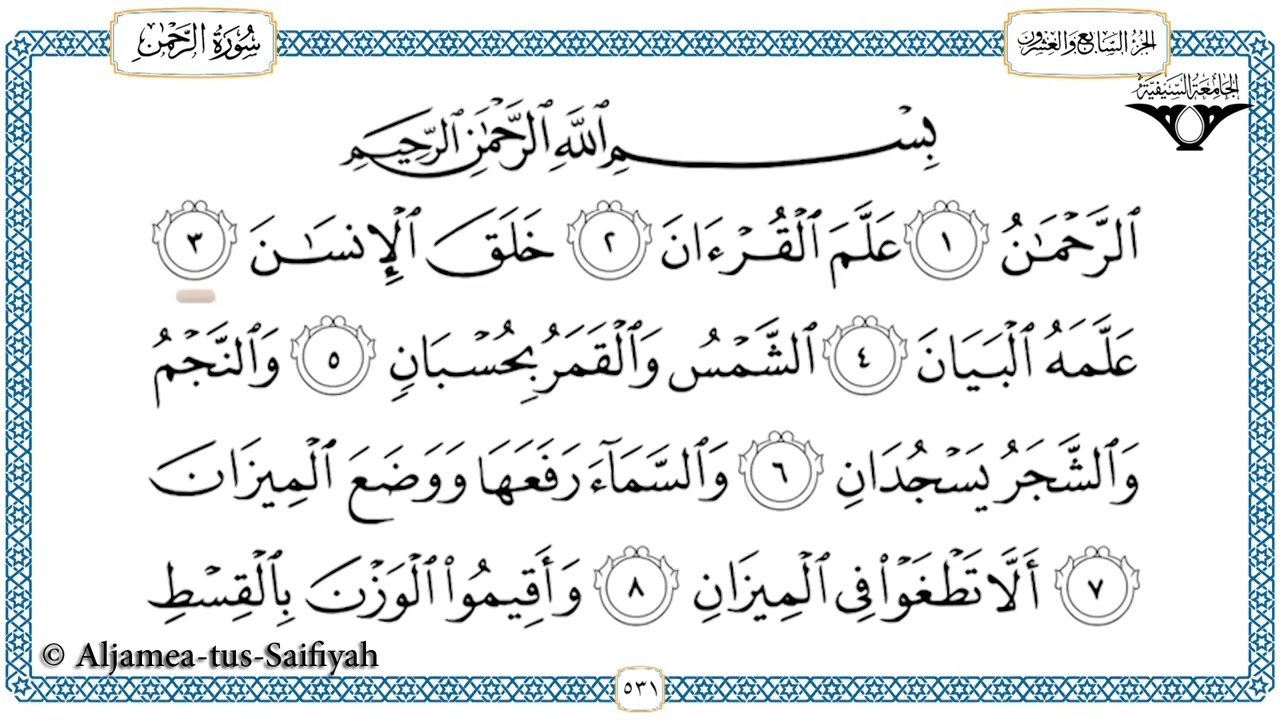 سُورَةُ الرَّحْمٰن
الجزء السابع والعشرون
الجامعة السيفية
بِسْمِ ٱللَّهِ ٱلرَّحْمَٰنِ ٱلرَّحِيمِ
ٱلرَّحْمَٰنُ ١ عَلَّمَ ٱلْقُرْءَانَ ٢ خَلَقَ ٱلْإِنسَٰنَ ٣
عَلَّمَهُ ٱلْبَيَانَ ٤ ٱلشَّمْسُ وَٱلْقَمَرُ بِحُسْبَانٍ ٥ وَٱلنَّجْمُ
وَٱلشَّجَرُ يَسْجُدَانِ ٦ وَٱلسَّمَآءَ رَفَعَهَا وَوَضَعَ ٱلْمِيزَانَ
٧ أَلَّا تَطْغَوْا۟ فِى ٱلْمِيزَانِ ٨ وَأَقِيمُوا۟ ٱلْوَزْنَ بِٱلْقِسْطِ
© Aljamea-tus-Saifiyah
٥٣١